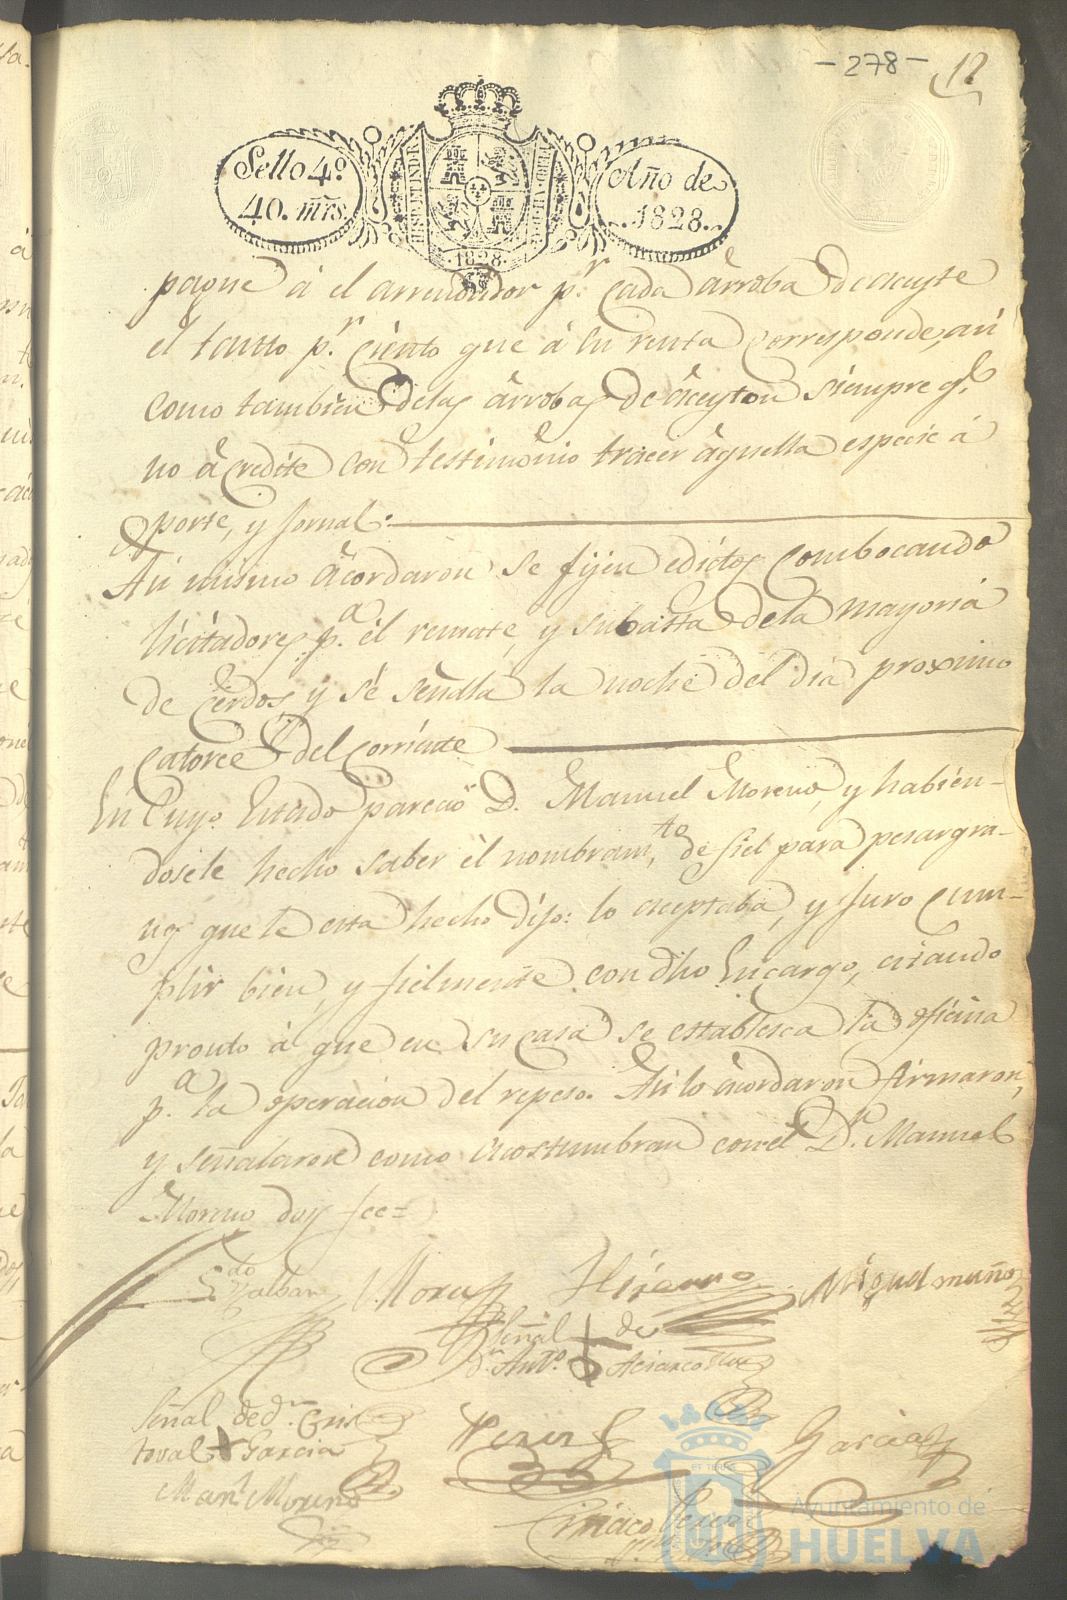 -278- 12
Sello 4º. 40. mrs.
HISP. ET IND. R. FERD. VII. D. G.
1828
Año de 1828.
pague á el arrendador p.r cada arroba de aceyte
el tantto p.r ciento que à la renta corresponde, asi
como tambien de las àrrobas de àceyton siempre q.e
no àcredite con testimonio traer àquella especie á
porte, y jornal.
Asi mismo àcordaron se fijen edictos combocando
licitadores p.a èl remate, y subasta de la mayoria
de Cerdos y sé señala la noche del dia proximo
Catorce del corriente
En Cuyo Estado pareció D. Manuel Moreno, y habien-
dosele hecho saber èl nombram.to de fiel para pesar gra-
nos que le esta hecho Dijo: lo aceptaba, y Juro Cum-
plir bien, y fielmente con dho Encargo, estando
pronto à que en su casa se establesca la oficina
p.a la operacion del repeso. Asi lo àcordaron firmaron,
y señalaron como acostumbran con el D.n Manuel
Moreno doy fee=
Miguel muñoz
Señal de
D.n Ant.o
Señal de d.n Cris
toval + Garcia
Perez Garcia
Man.l Moreno
Ciriaco
Ayuntamiento de
HUELVA